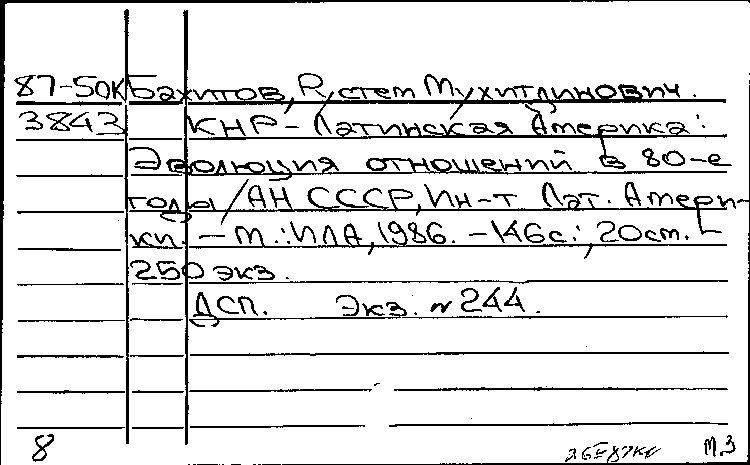 87-50К Бахитов, Рустем Мухитдинович.
3843 КНР - Латинская Америка:
Эволюция отношений в 80-е
годы / АН СССР, Ин-т Лат. Амери-
ки. - М.: ИЛА, 1986. - 146 с.; 20 см. -
250 экз.
ДСП. Экз. № 244.
8 М.З